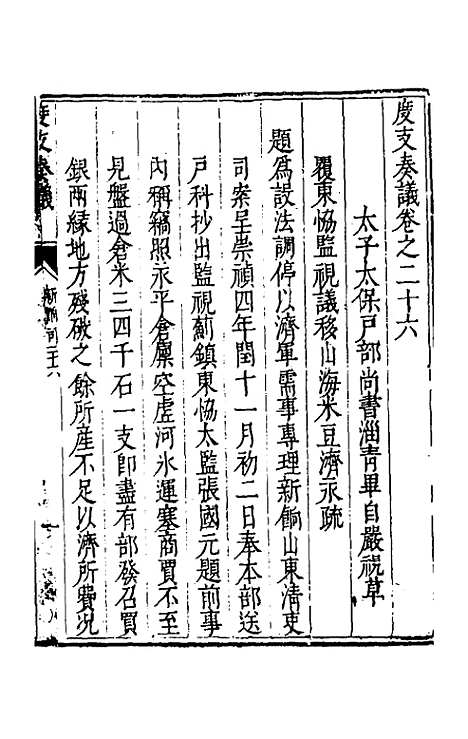 度支奏議卷之二十六
太子太保戸部尚書淄青畢自嚴視草
覆東恊監視議移山海米豆濟永疏
題爲設法調停以濟軍需事專理新餉山東清吏
司案呈崇禎四年閏十一月初二日奉本部送
戸科抄出監視薊鎮東恊太監張國元題前事
內稱竊照永平倉廪空虛河氷運塞商賈不至
見盤過倉米三四千石一支卽盡有部發召買
銀兩緣地方殘破之餘所産不足以濟所費况
度支奏議
新餉司二十六